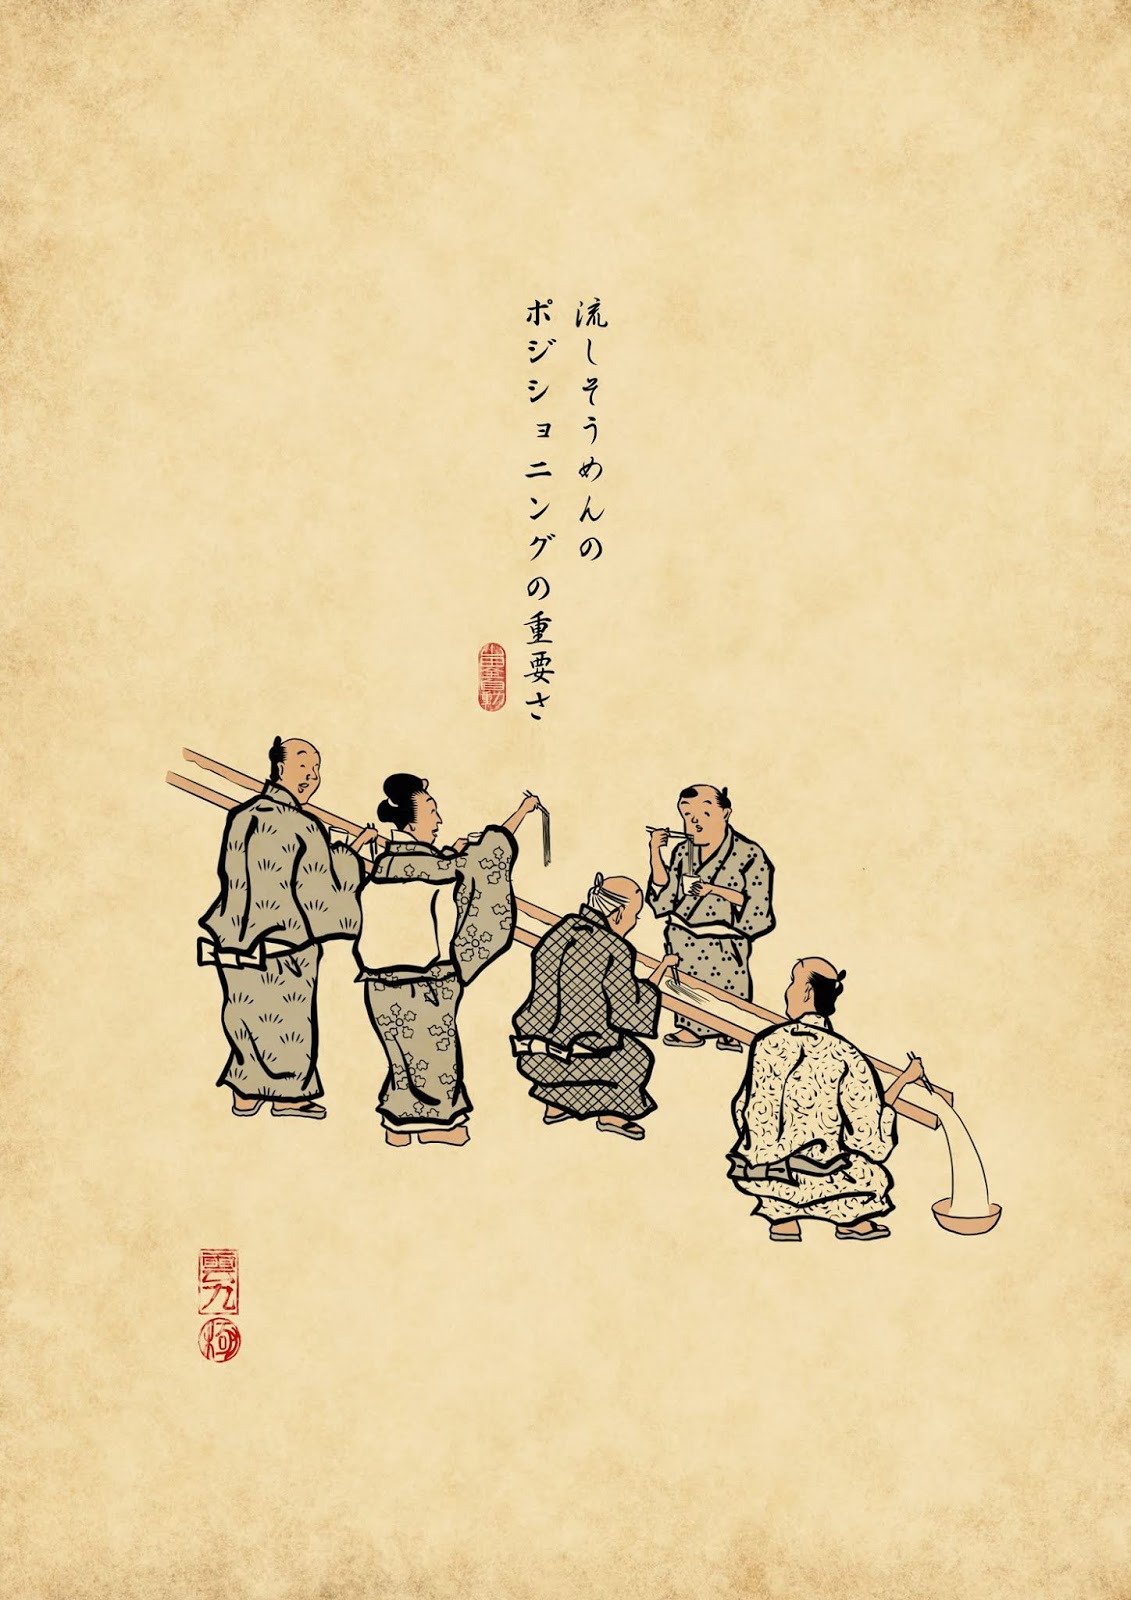 流しそうめんの
ポジショニングの重要さ